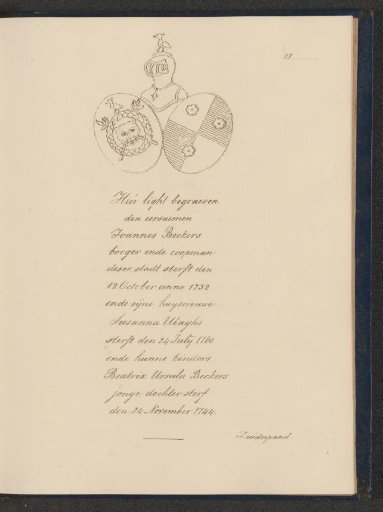 18
Hier light begraeven
den eersaemen
Joannes Beckers
borger ende coopman
deser stadt sterft den
12 October anno 1752
ende sijne huysvrouwe
Susanna Ubaghs
sterft den 24 Julij 1760
ende hunne kinders
Beatrix Ursula Beckers
jonge dochter sterf
den 20 November 1744.
Zuiderpand